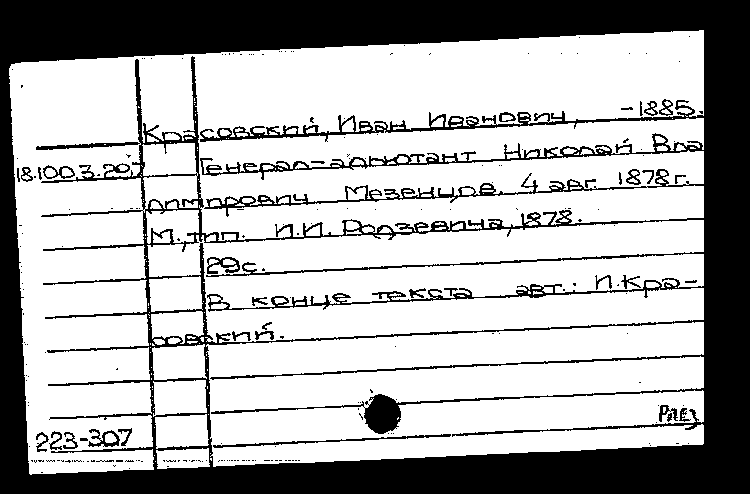 Красовский, Иван Иванович, -1885.
18.100.3.207 Генерал-адъютант Николай Вла
димирович Мезенцов. 4 авг. 1878 г.
М., тип. И.И. Родзевича, 1878.
29с.
В конце текста авт.: И.Кра-
совский.
223-307